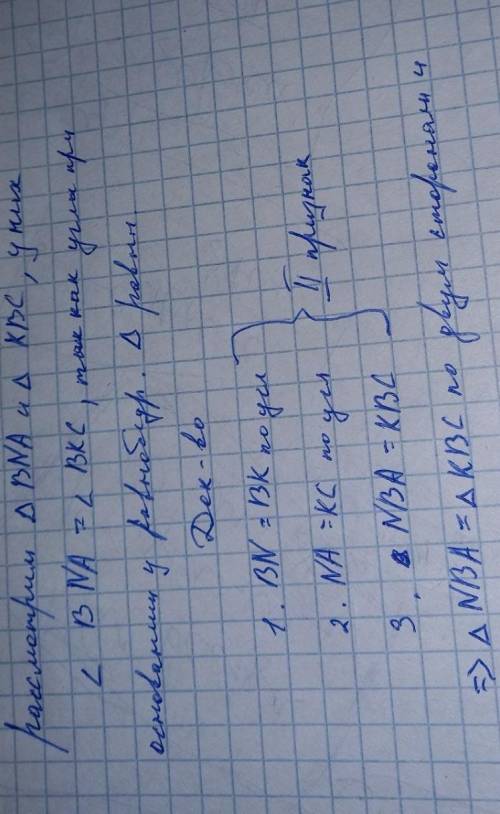 рассмотрим Δ BNA и Δ KBC, у них
∠ BNA = ∠ BKC, так как углы при
основании у равнобедр. Δ равны
Док-во
1. BN = BK по усл
2. NA = KC по усл
3. NBA = KBC
II признак
=> Δ NBA = Δ KBC по двум сторонам и